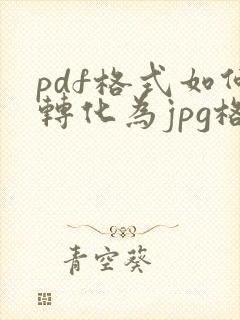 pdf格式如何
轉化為jpg格
青空葵